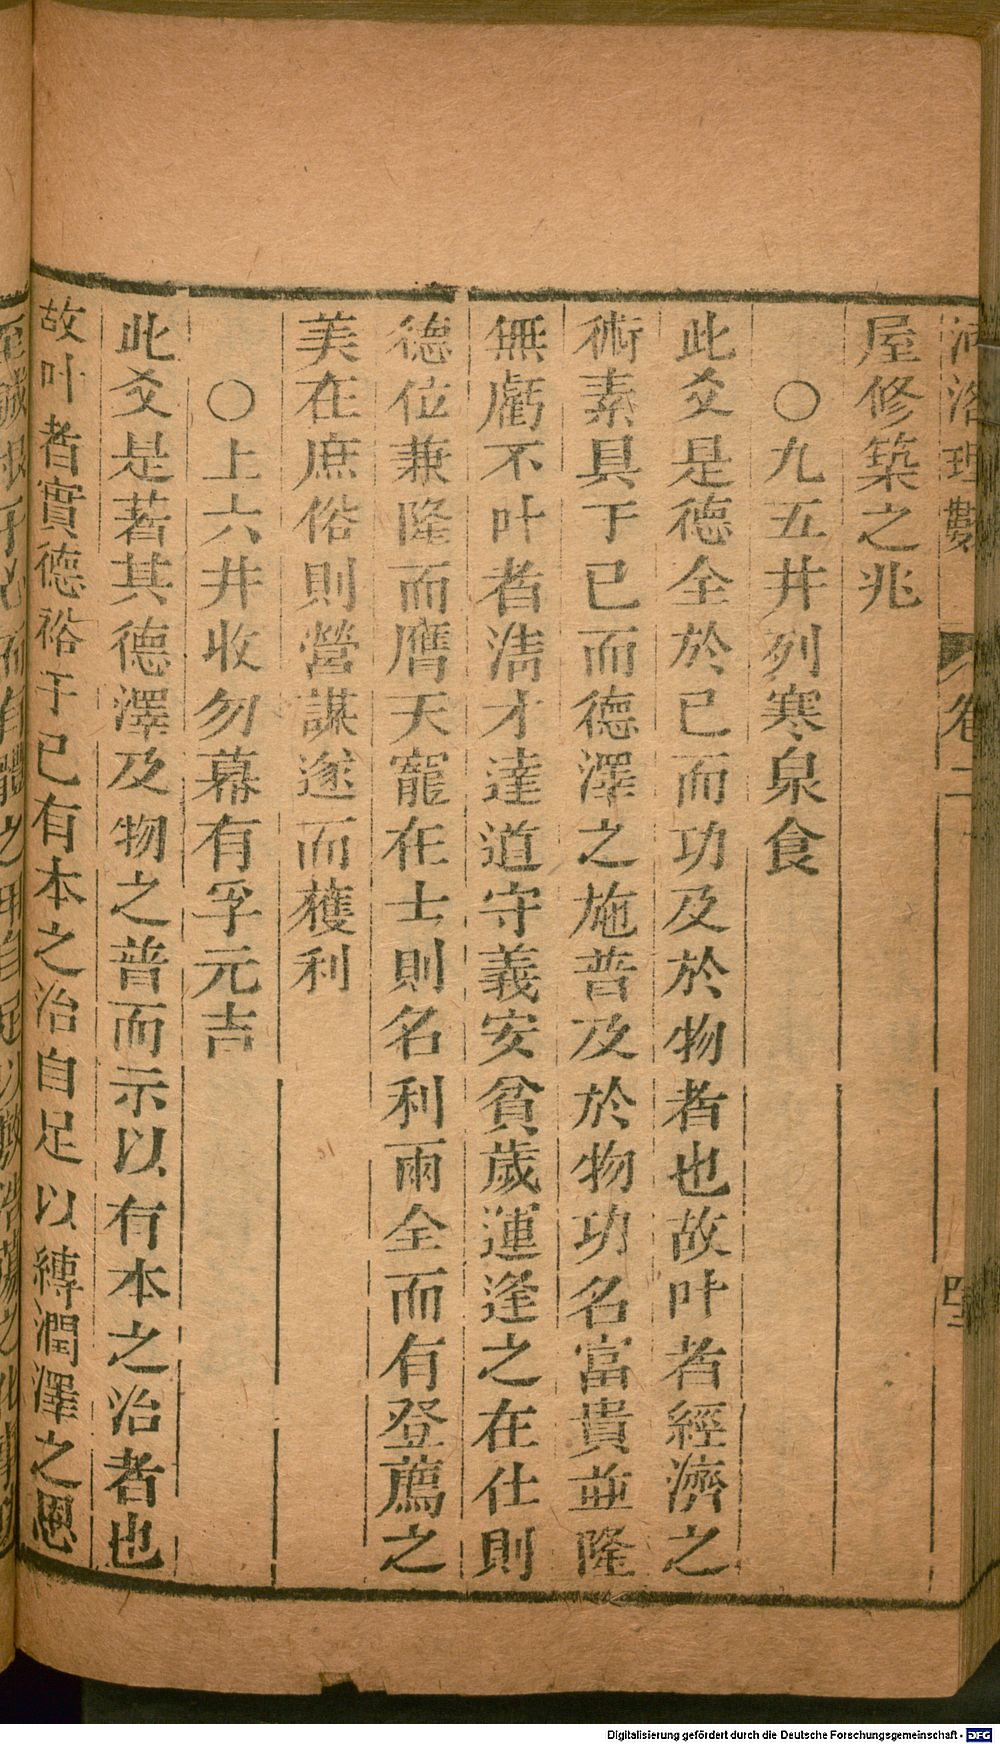 河洛理數 卷二
屋修築之兆
○九五井列寒泉食
此爻是德全於已而功及於物者也故叶者經濟之
術素具于已而德澤之施普及於物功名富貴並隆
無虧不叶者清才達道守義安貧歲運逢之在仕則
德位兼隆而膺天寵在士則名利兩全而有登薦之
美在庶俗則營謀遂而獲利
○上六井收勿幕有孚元吉
此爻是著其德澤及物之普而示以有本之治者也
故叶者實德裕于已有本之治自足以縳潤澤之恩
Digitalisierung gefördert durch die Deutsche Forschungsgemeinschaft - DFG